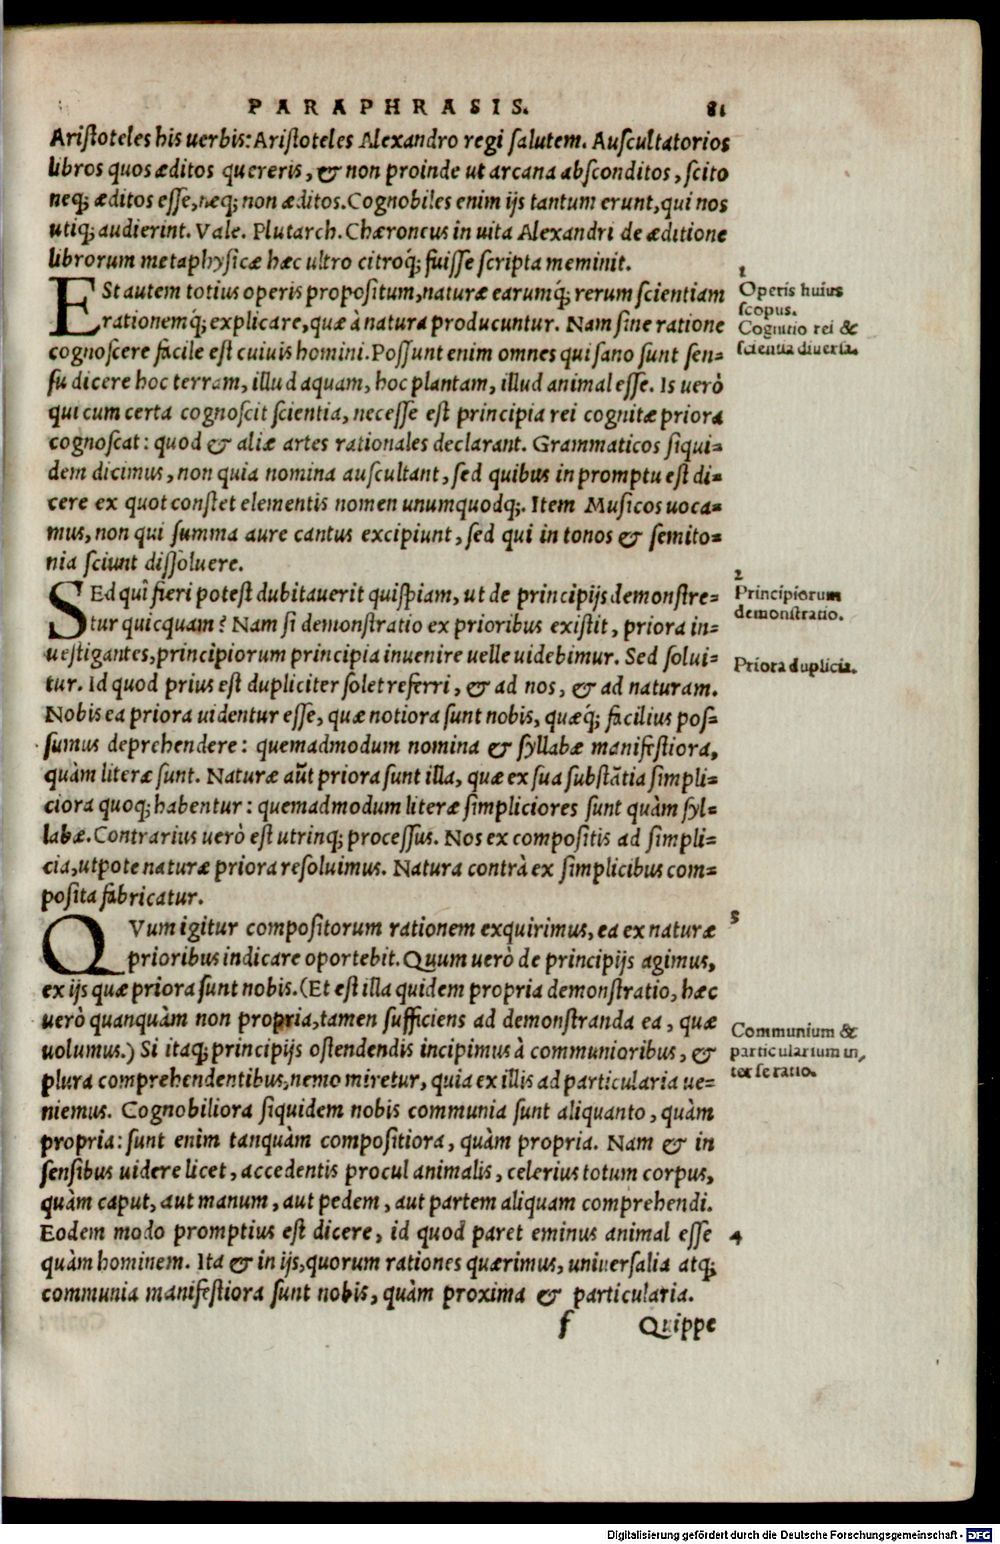 PARAPHRASIS. 81
Aristoteles his uerbis: Aristoteles Alexandro regi salutem. Auscultatorios
libros quos æditos quereris, & non proinde ut arcana absconditos, scito
neq; æditos esse, neq; non æditos. Cognobiles enim ijs tantum erunt, qui nos
utiq; audierint. Vale. Plutarch. Chæroneus in uita Alexandri de æditione
librorum metaphysicæ hæc ultro citroq́; fuisse scripta meminit.
ESt autem totius operis propositum, naturæ earumq́; rerum scientiam
rationemq́; explicare, quæ à natura producuntur. Nam sine ratione
cognoscere facile est cuiuis homini. Possunt enim omnes qui sano sunt sen=
su dicere hoc terram, illud aquam, hoc plantam, illud animal esse. Is uerò
qui cum certa cognoscit scientia, necesse est principia rei cognitæ priora
cognoscat: quod & aliæ artes rationales declarant. Grammaticos siqui=
dem dicimus, non quia nomina auscultant, sed quibus in promptu est di=
cere ex quot constet elementis nomen unumquodq;. Item Musicos uoca=
mus, non qui summa aure cantus excipiunt, sed qui in tonos & semito=
nia sciunt dissoluere.
SEd quî fieri potest dubitauerit quispiam, ut de principijs demonstre=
tur quicquam? Nam si demonstratio ex prioribus existit, priora in=
uestigantes, principiorum principia inuenire uelle uidebimur. Sed solui=
tur. Id quod prius est dupliciter solet referri, & ad nos, & ad naturam.
Nobis ea priora uidentur esse, quæ notiora sunt nobis, quæq́; facilius pos=
sumus deprehendere: quemadmodum nomina & syllabæ manifestiora,
quàm literæ sunt. Naturæ aũt priora sunt illa, quæ ex sua substãtia simpli=
ciora quoq; habentur: quemadmodum literæ simpliciores sunt quàm syl=
labæ. Contrarius uerò est utrinq; processus. Nos ex compositis ad simpli=
cia, utpote naturæ priora resoluimus. Natura contrà ex simplicibus com=
posita fabricatur.
QVum igitur compositorum rationem exquirimus, ea ex naturæ
prioribus indicare oportebit. Quum uerò de principijs agimus,
ex ijs quæ priora sunt nobis. (Et est illa quidem propria demonstratio, hæc
uerò quanquàm non propria, tamen sufficiens ad demonstranda ea, quæ
uolumus.) Si itaq; principijs ostendendis incipimus à communioribus, &
plura comprehendentibus, nemo miretur, quia ex illis ad particularia ue=
niemus. Cognobiliora siquidem nobis communia sunt aliquanto, quàm
propria: sunt enim tanquàm compositiora, quàm propria. Nam & in
sensibus uidere licet, accedentis procul animalis, celerius totum corpus,
quàm caput, aut manum, aut pedem, aut partem aliquam comprehendi.
Eodem modo promptius est dicere, id quod paret eminus animal esse
quàm hominem. Ita & in ijs, quorum rationes quærimus, uniuersalia atq;
communia manifestiora sunt nobis, quàm proxima & particularia.
f Quippe
1
Operis huius
scopus.
Cognitio rei &
scientia diuersa.
2
Principiorum
demonstratio.
Priora duplicia.
3
Communium &
particularium in,
ter se ratio.
4
Digitalisierung gefördert durch die Deutsche Forschungsgemeinschaft - DFG